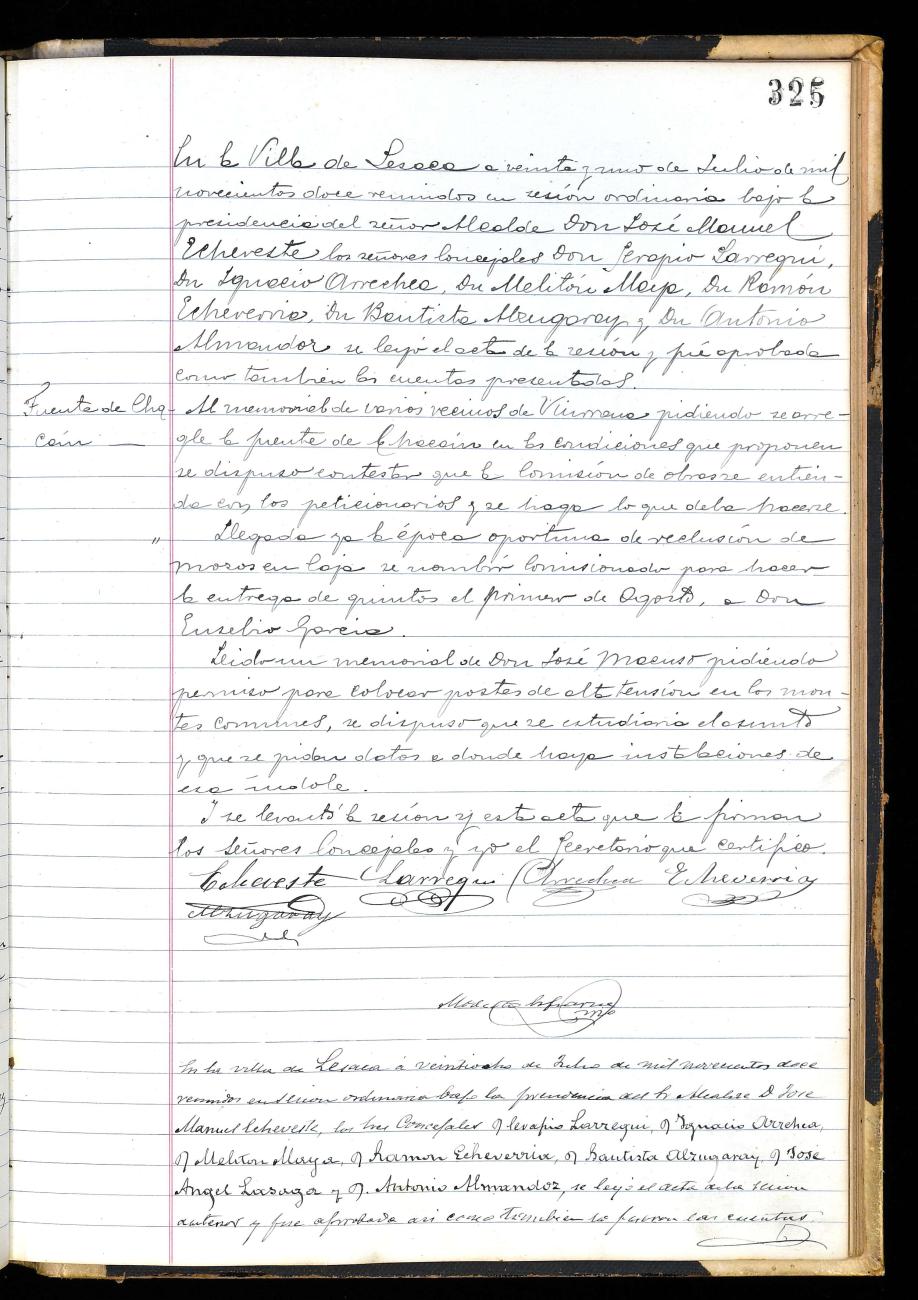 325
En la Villa de Lesaca a veinte y uno de Julio de mil
novecientos doce reunidos en sesión ordinaria bajo la
presidencia del señor Alcalde Don José Manuel
Echeveste los señores Concejales Don Serapio Larregui,
Dn Ignacio Arrechea, Dn Melitón Maya, Dn Ramón
Echeverria, Dn Bautista Alzugaray y Dn Antonio
Almandoz se leyó el acta de la sesión y fué aprobada
como también las cuentas presentadas.
Fuente de Cha-
cain —
Al memorial de varios vecinos de pidiendo se arre-
gle la fuente de Chacain en las condiciones que proponen
se dispuso contestar que la Comisión de obras se entien-
da con los peticionarios y se haga lo que deba hacerse.
"
Llegada ya la época oportuna de reclusión de
mozos en Caja se nombró Comisionado para hacer
la entrega de quintos el primero de Agosto, a Don
Eusebio Garcia.
Leido un memorial de Don José pidiendo
permiso para colocar postes de alta tensión en los mon-
tes comunes, se dispuso que se estudiaria el asunto
y que se pidan datos a donde haya instalaciones de
esa índole.
Y se levantó la sesión y esta acta que la firman
los señores Concejales y yo el Secretario que certifico.
Echeveste Larregui Arrechea Echeverria
Alzugaray
En la villa de Lesaca á veintiocho de Julio de mil novecientos doce
reunidos en sesion ordinaria bajo la presidencia del Sr Alcalde D José
Manuel Echeveste, los Sres Concejales D Serapio Larregui, D Ignacio Arrechea,
D Meliton Maya, D Ramon Echeverria, D Bautista Alzugaray, D José
Angel Lasaga y D. Antonio Almandoz, se leyó el acta de la sesion
anterior y fue aprobada asi como tambien lo fueron las cuentas.